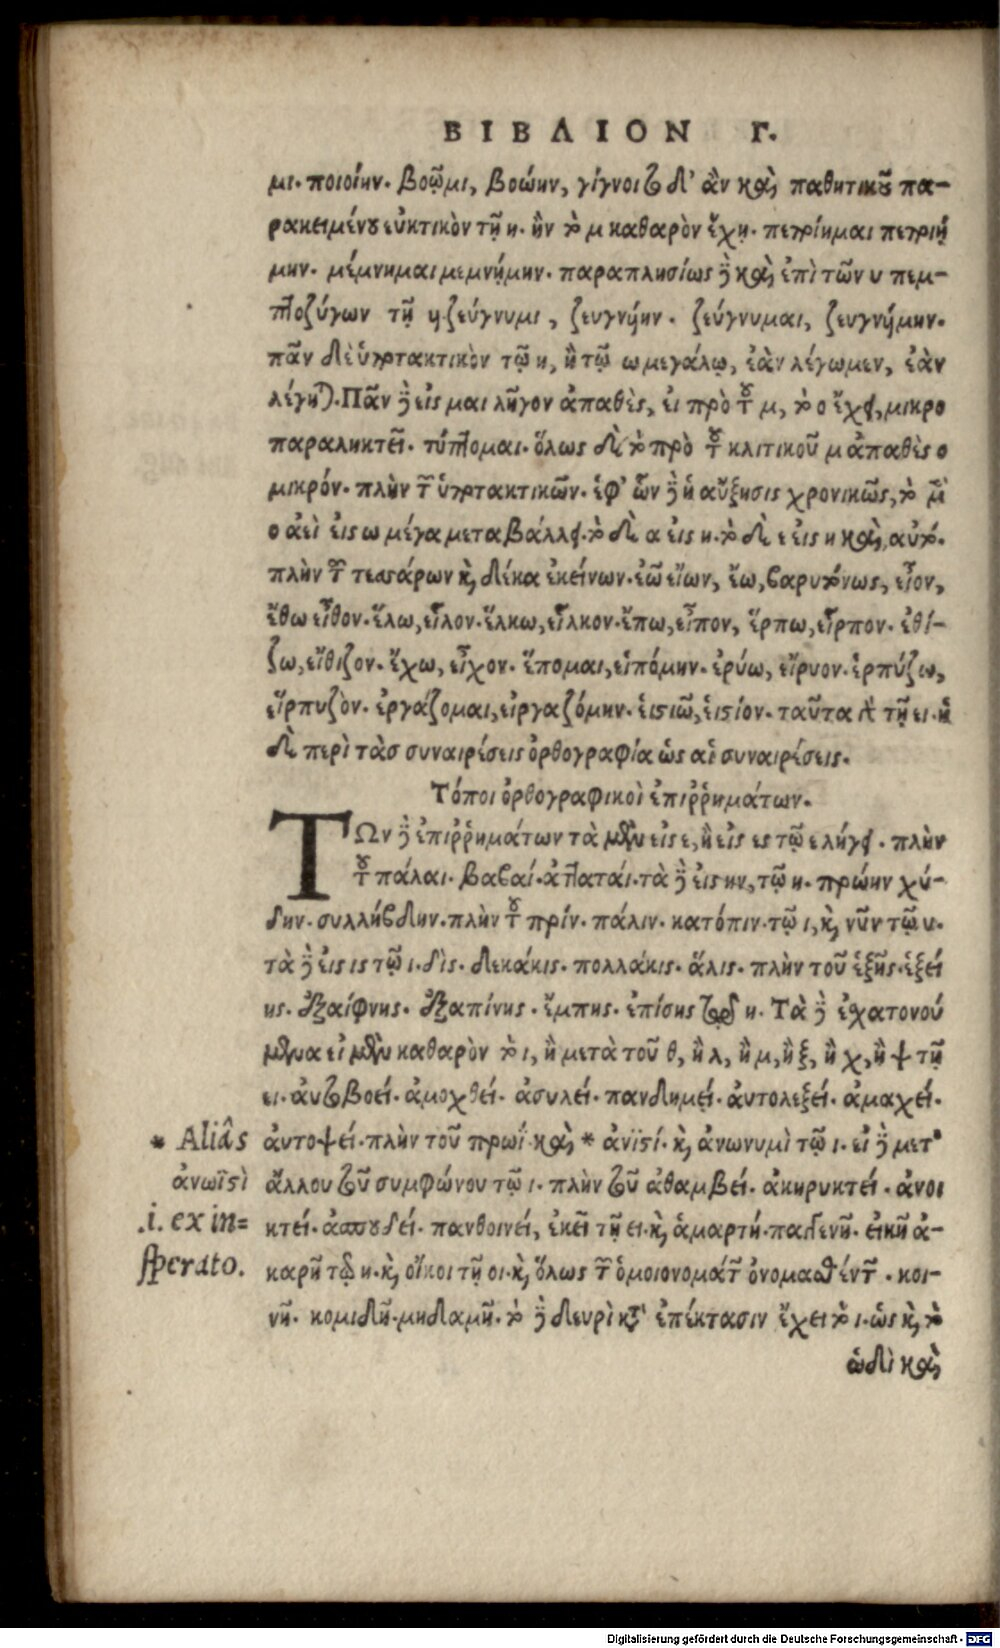 ΒΙΒΛΙΟΝ Γ.
μι. ποιοίην. βοῷμι, βοώην, γίγνοιτο δ' ἂν καὶ παθητικοῦ πα-
ρακειμένου εὐκτικὸν τῇ η. ἢν τὸ μ καθαρὸν ἔχῃ. πετρίημαι πετριῄ
μην. μέμνημαι μεμνῄμην. παραπλησίως γὰρ καὶ ἐπὶ τῶν υ πεμ-
πτοζύγων τῇ ῃ. ζεύγνυμι, ζευγνύην. ζεύγνυμαι, ζευγνύμην.
πᾶν δὲ ὑποτακτικὸν τῷ η, ἢ τῷ ω μεγάλῳ, ἐὰν λέγωμεν, ἐὰν
λέγηται. Πᾶν γὰρ εἰς μαι λῆγον ἀπαθὲς, εἰ πρὸ τοῦ μ, τὸ ο ἔχει, μικρο
παραληκτεῖ. τύπτομαι. ὅλως δὲ τὸ πρὸ τοῦ κλιτικοῦ μ ἀπαθὲς ο
μικρόν. πλὴν τῶν ὑποτακτικῶν. ἐφ' ὧν γὰρ ἡ αὔξησις χρονικῶς, τὸ μὲν
ο ἀεὶ εἰς ω μέγα μεταβάλλει. τὸ δὲ α εἰς η. τὸ δὲ ε εἰς η καὶ αὐτό.
πλὴν τῶν τεσσάρων καὶ δέκα ἐκείνων. ἐῶ εἴων, ἕω, βαρυτόνως, εἷον,
ἔθω εἶθον. ἕλω, εἷλον. ἕλκω, εἷλκον. ἔπω, εἶπον, ἕρπω, εἷρπον. ἐθί-
ζω, εἴθιζον. ἔχω, εἶχον. ἕπομαι, εἱπόμην. ἐρύω, εἴρυον. ἑρπύζω,
εἵρπυζὸν. ἐργάζομαι, εἰργαζόμην. ἑιστιῶ, ἑιστίον. ταῦτα δὲ τῇ ει. ἡ
δὲ περὶ τὰσ συναιρέσεις ὀρθογραφία ὡς αἱ συναιρέσεις.
Τόποι ὀρθογραφικοὶ ἐπιῤῥημάτων.
ΤΩν γὰρ ἐπιῤῥημάτων τὰ μὲν εἰς ε, ἢ εἰς ες τῷ ε λήγει. πλὴν
τοῦ πάλαι. βαβαί. ἀπταταί. τὰ γὰρ εἰς ην, τῷ η. πρώην χύ-
δην. συλλήβδην. πλὴν τοῦ πρίν. πάλιν. κατόπιν. τῷ ι, καὶ νῦν τῷ υ.
τὰ γὰρ εἰς ις τῷ ι. δὶς. δεκάκις. πολλάκις. ἅλις. πλὴν τοῦ ἑξῆς. ἑξεί
ης. ἐξαίφνης. ἐξαπίνης. ἔμπης. ἐπίσης παρὰ η. Τὰ γὰρ ἐχατονού
μενα εἰ μὲν καθαρὸν τὸ ι, ἢ μετὰ τοῦ θ, ἢ λ, ἢ μ, ἢ ξ, ἢ χ, ἢ ψ τῇ
ει. ἀυτοβοεί. ἀμοχθεί. ἀσυλεί. πανδημεί. ἀυτολεξεί. ἀμαχεί.
ἀυτοψεί. πλὴν τοῦ πρωΐ. καὶ * ἀνϊστί. καὶ ἀνωνυμὶ τῷ ι. εἰ γὰρ μετ'
ἄλλου του συμφώνου τῷ ι. πλὴν τοῦ ἀθαμβεί. ἀκηρυκτεί. ἀνοι
κτεί. ἀσπουδεί. πανθοινεί, ἐκεῖ τῇ ει. καὶ ἁμαρτή. παδενῆ. εἰκῆ ἀ-
καρῆ τῷ η. καὶ οἴκοι τῇ οι. καὶ ὅλως τῶν ὁμοιονομάτων ὀνομασθέντων. κοι-
νῆ. κομιδῆ. μηδαμῆ. τὸ γὰρ δευρὶ κατ' ἐπέκτασιν ἔχει τὸ ι. ὡς καὶ τὸ
ὡδὶ καὶ
* Aliâs
ἀνωϊστὶ
.i. ex in=
sperato.
Digitalisierung gefördert durch die Deutsche Forschungsgemeinschaft - DFG